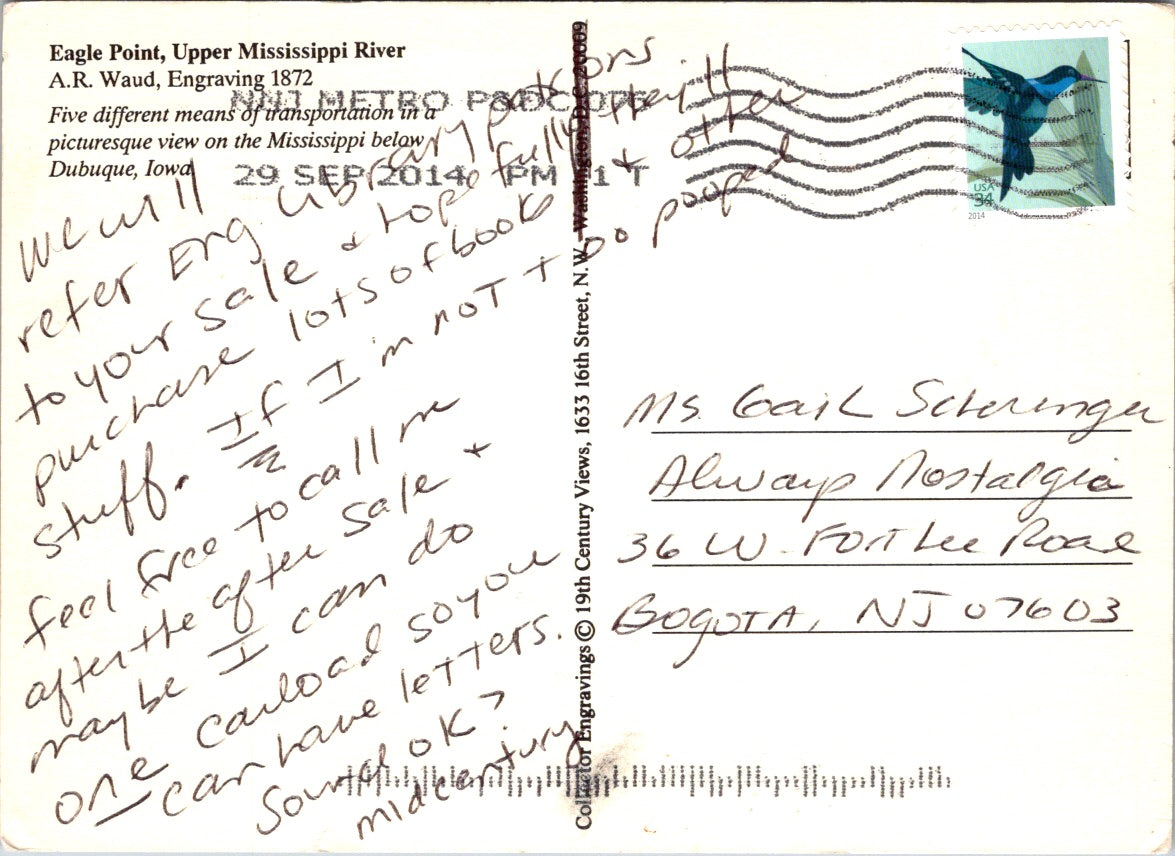 Eagle Point, Upper Mississippi River
A.R. Waud, Engraving 1872
Five different means of transportation in a
picturesque view on the Mississippi below
Dubuque, Iowa
NNJ METRO P&DC 076
29 SEP 2014 PM 1 T
USA
34
2014
We will
refer Eng Library patrons
to your sale + hopefully they'll
purchase lots of books + other
stuff. If I'm not too pooped
feel free to call me
after the after sale +
maybe I can do
one carload so you
can have letters.
Sound ok?
midcentury
Collector Engravings © 19th Century Views, 1633 16th Street, N.W. Washington, D.C. 20009
Ms. Gail
Always Nostalgia
36 W. Fort Lee Road
Bogota, NJ 07603